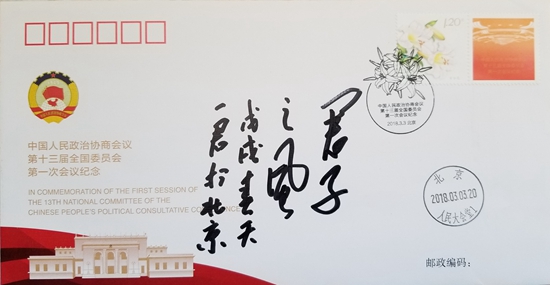 1.20
中国人民政治协商会议
第十三届全国委员会
第一次会议纪念
2018.3.3 北京
中国人民政治协商会议
第十三届全国委员会
第一次会议纪念
IN COMMEMORATION OF THE FIRST SESSION OF
THE 13TH NATIONAL COMMITTEE OF THE
CHINESE PEOPLE'S POLITICAL CONSULTATIVE
君子
之風
戊戌春天
北京
北京
2018.03.03.20
人民大会堂1
邮政编码：